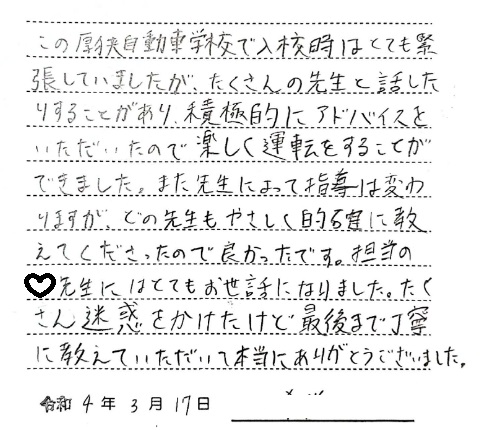 この厚狭自動車学校で入校時はとても緊
張していましたが、たくさんの先生と話した
りすることがあり、積極的にアドバイスを
いただいたので楽しく運転をすることが
できました。また先生によって指導は変わ
りますが、どの先生もやさしく的確に教
えてくださったので良かったです。担当の
先生にはとてもお世話になりました。たく
さん迷惑をかけたけど最後まで丁寧
に教えていただいて本当にありがとうございました。
令和 4 年 3 月 17 日